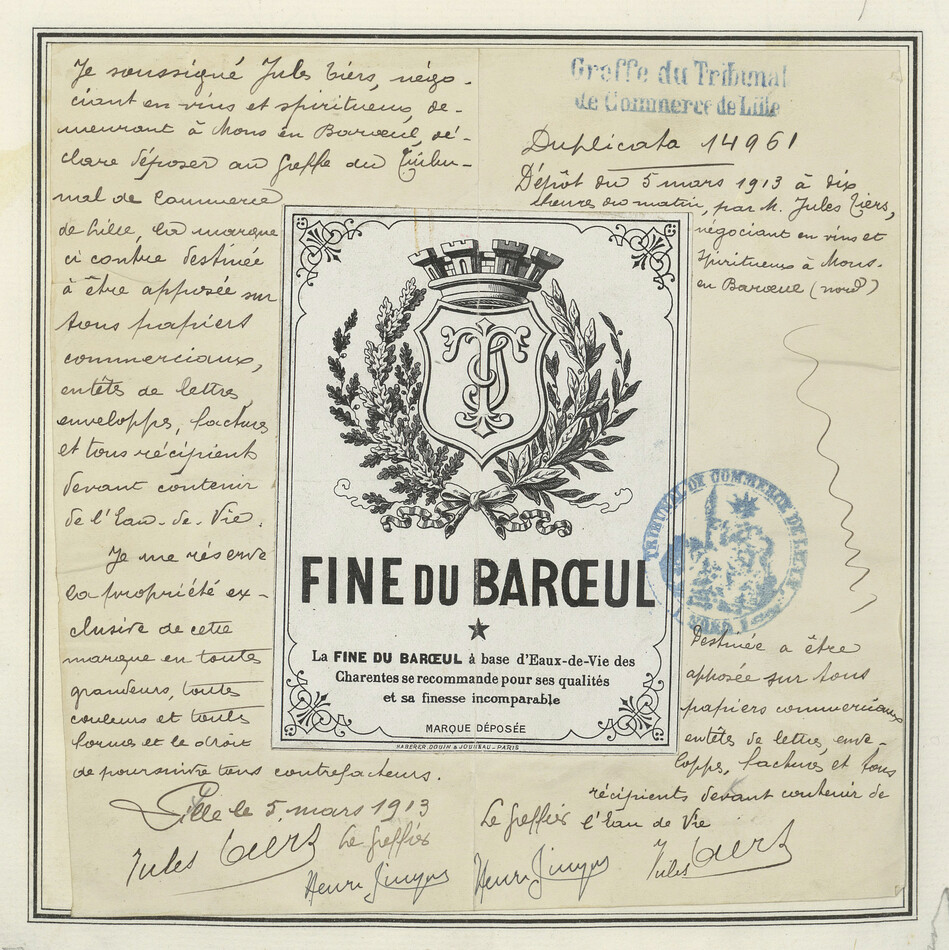 Je soussigné Jules Tiers, négo-
ciant en vins et spiritueux, de-
meurant à Mons en Barœul, dé-
clare déposer au Greffe du Tribu-
nal de Commerce
de Lille, la marque
ci contre destinée
à être apposée sur
tous papiers
commerciaux,
entêts de lettres
enveloppes, factures
et tous récipients
devant contenir
de l'Eau-de-Vie.
Je me réserve
la propriété ex-
clusive de cette
marque en toutes
grandeurs, toutes
couleurs et toutes
formes et le droit
de poursuivre tous contrefacteurs.
Lille le 5 mars 1913
Le Greffier
Jules Tiers
Henri
Greffe du Tribunal
de Commerce de Lille
Duplicata 14961
Dépôt du 5 mars 1913 à dix
heures du matin, par M. Jules Tiers,
négociant en vins et
spiritueux à Mons-
en Barœul (nord)
TP
FINE DU BARŒUL
La FINE DU BARŒUL à base d'Eaux-de-Vie des
Charentes se recommande pour ses qualités
et sa finesse incomparable
MARQUE DÉPOSÉE
HABERER. DOUIN & JOUNEAU - PARIS
TRIBUNAL DE COMMERCE DE LILLE
NORD
Destinée a être
apposée sur tous
papiers commerciaux
entêts de lettres, enve-
loppes, factures et tous
récipients devant contenir de
l'Eau de Vie
Le Greffier
Henri
Jules Tiers